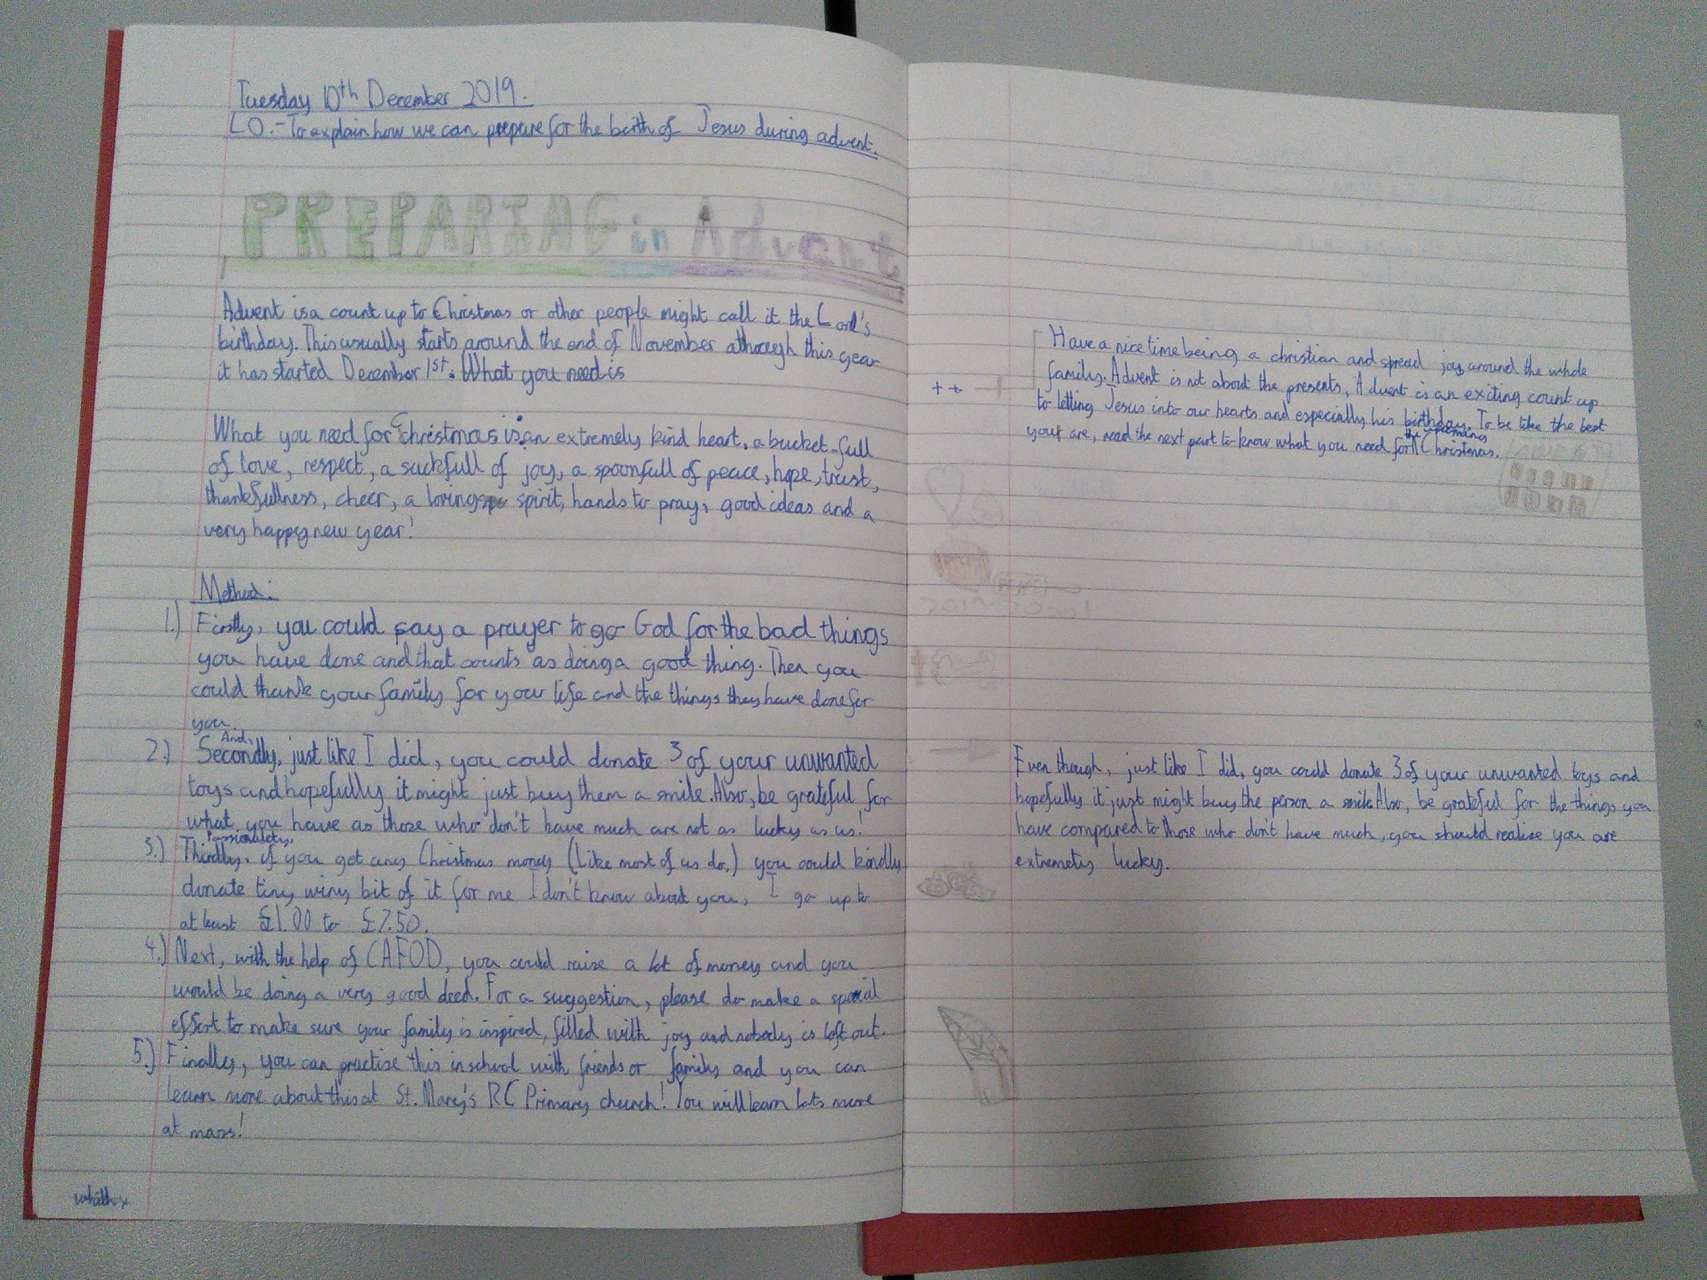 Tuesday 10th December 2019.
LO.-To explain how we can prepare for the birth of Jesus during advent.
PREPARING in Advent
Advent is a count up to Christmas or other people might call it the Lord's
birthday. This usually starts around the end of November although this year
it has started December 1st. What you need is
What you need for Christmas is an extremely kind heart, a bucket-full
of love, respect, a sackfull of joy, a spoonfull of peace, hope, trust,
thankfullness, cheer, a loving spirit, hands to pray, good ideas and a
very happy new year!
Method:
1.) Firstly, you could say a prayer to go God for the bad things
you have done and that counts as doing a good thing. Then you
could thank your family for your life and the things they have done for
you.
And,
2.) Secondly, just like I did, you could donate 3 of your unwanted
toys and hopefully it might just buy them a smile. Also, be grateful for
what you have as those who don't have much are not as lucky as us!
3.) Thirdly, if you get any Christmas money (Like most of us do,) you could kindly
donate tiny winy bit of it for me I don't know about you, I go up to
at least £1.00 to £7.50.
4.) Next, with the help of CAFOD, you could raise a lot of money and you
would be doing a very good deed. For a suggestion, please do make a special
effort to make sure your family is inspired, filled with joy and nobody is left out.
5.) Finally, you can practise this in school with friends or family and you can
learn more about this at St. Mary's RC Primary church! You will learn lots more
at mass!
++
Have a nice time being a christian and spread joy around the whole
family. Advent is not about the presents, Advent is an exiting count up
to letting Jesus into our hearts and especially his birthday. To be like the best
your are, need the next part to know what you need for the upcoming Christmas.
Even though, just like I did, you could donate 3 of your unwanted toys and
hopefully it just might buy the person a smile. Also, be grateful for the things you
have compared to those who don't have much, you should realise you are
extremely lucky.